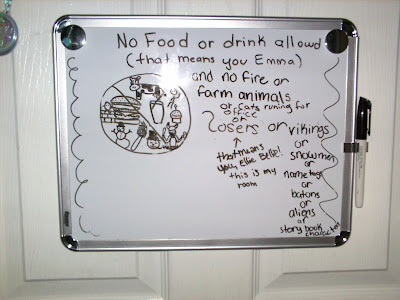 No Food or drink allowd
(that means you Emma)
and no fire or
farm animals
or cats runing for
office
or
Losers or vikings
that means
you, Ellie Belle!
this is my
room
or
snowmen
or
name tags
or
batons
or
aliens
or
story book